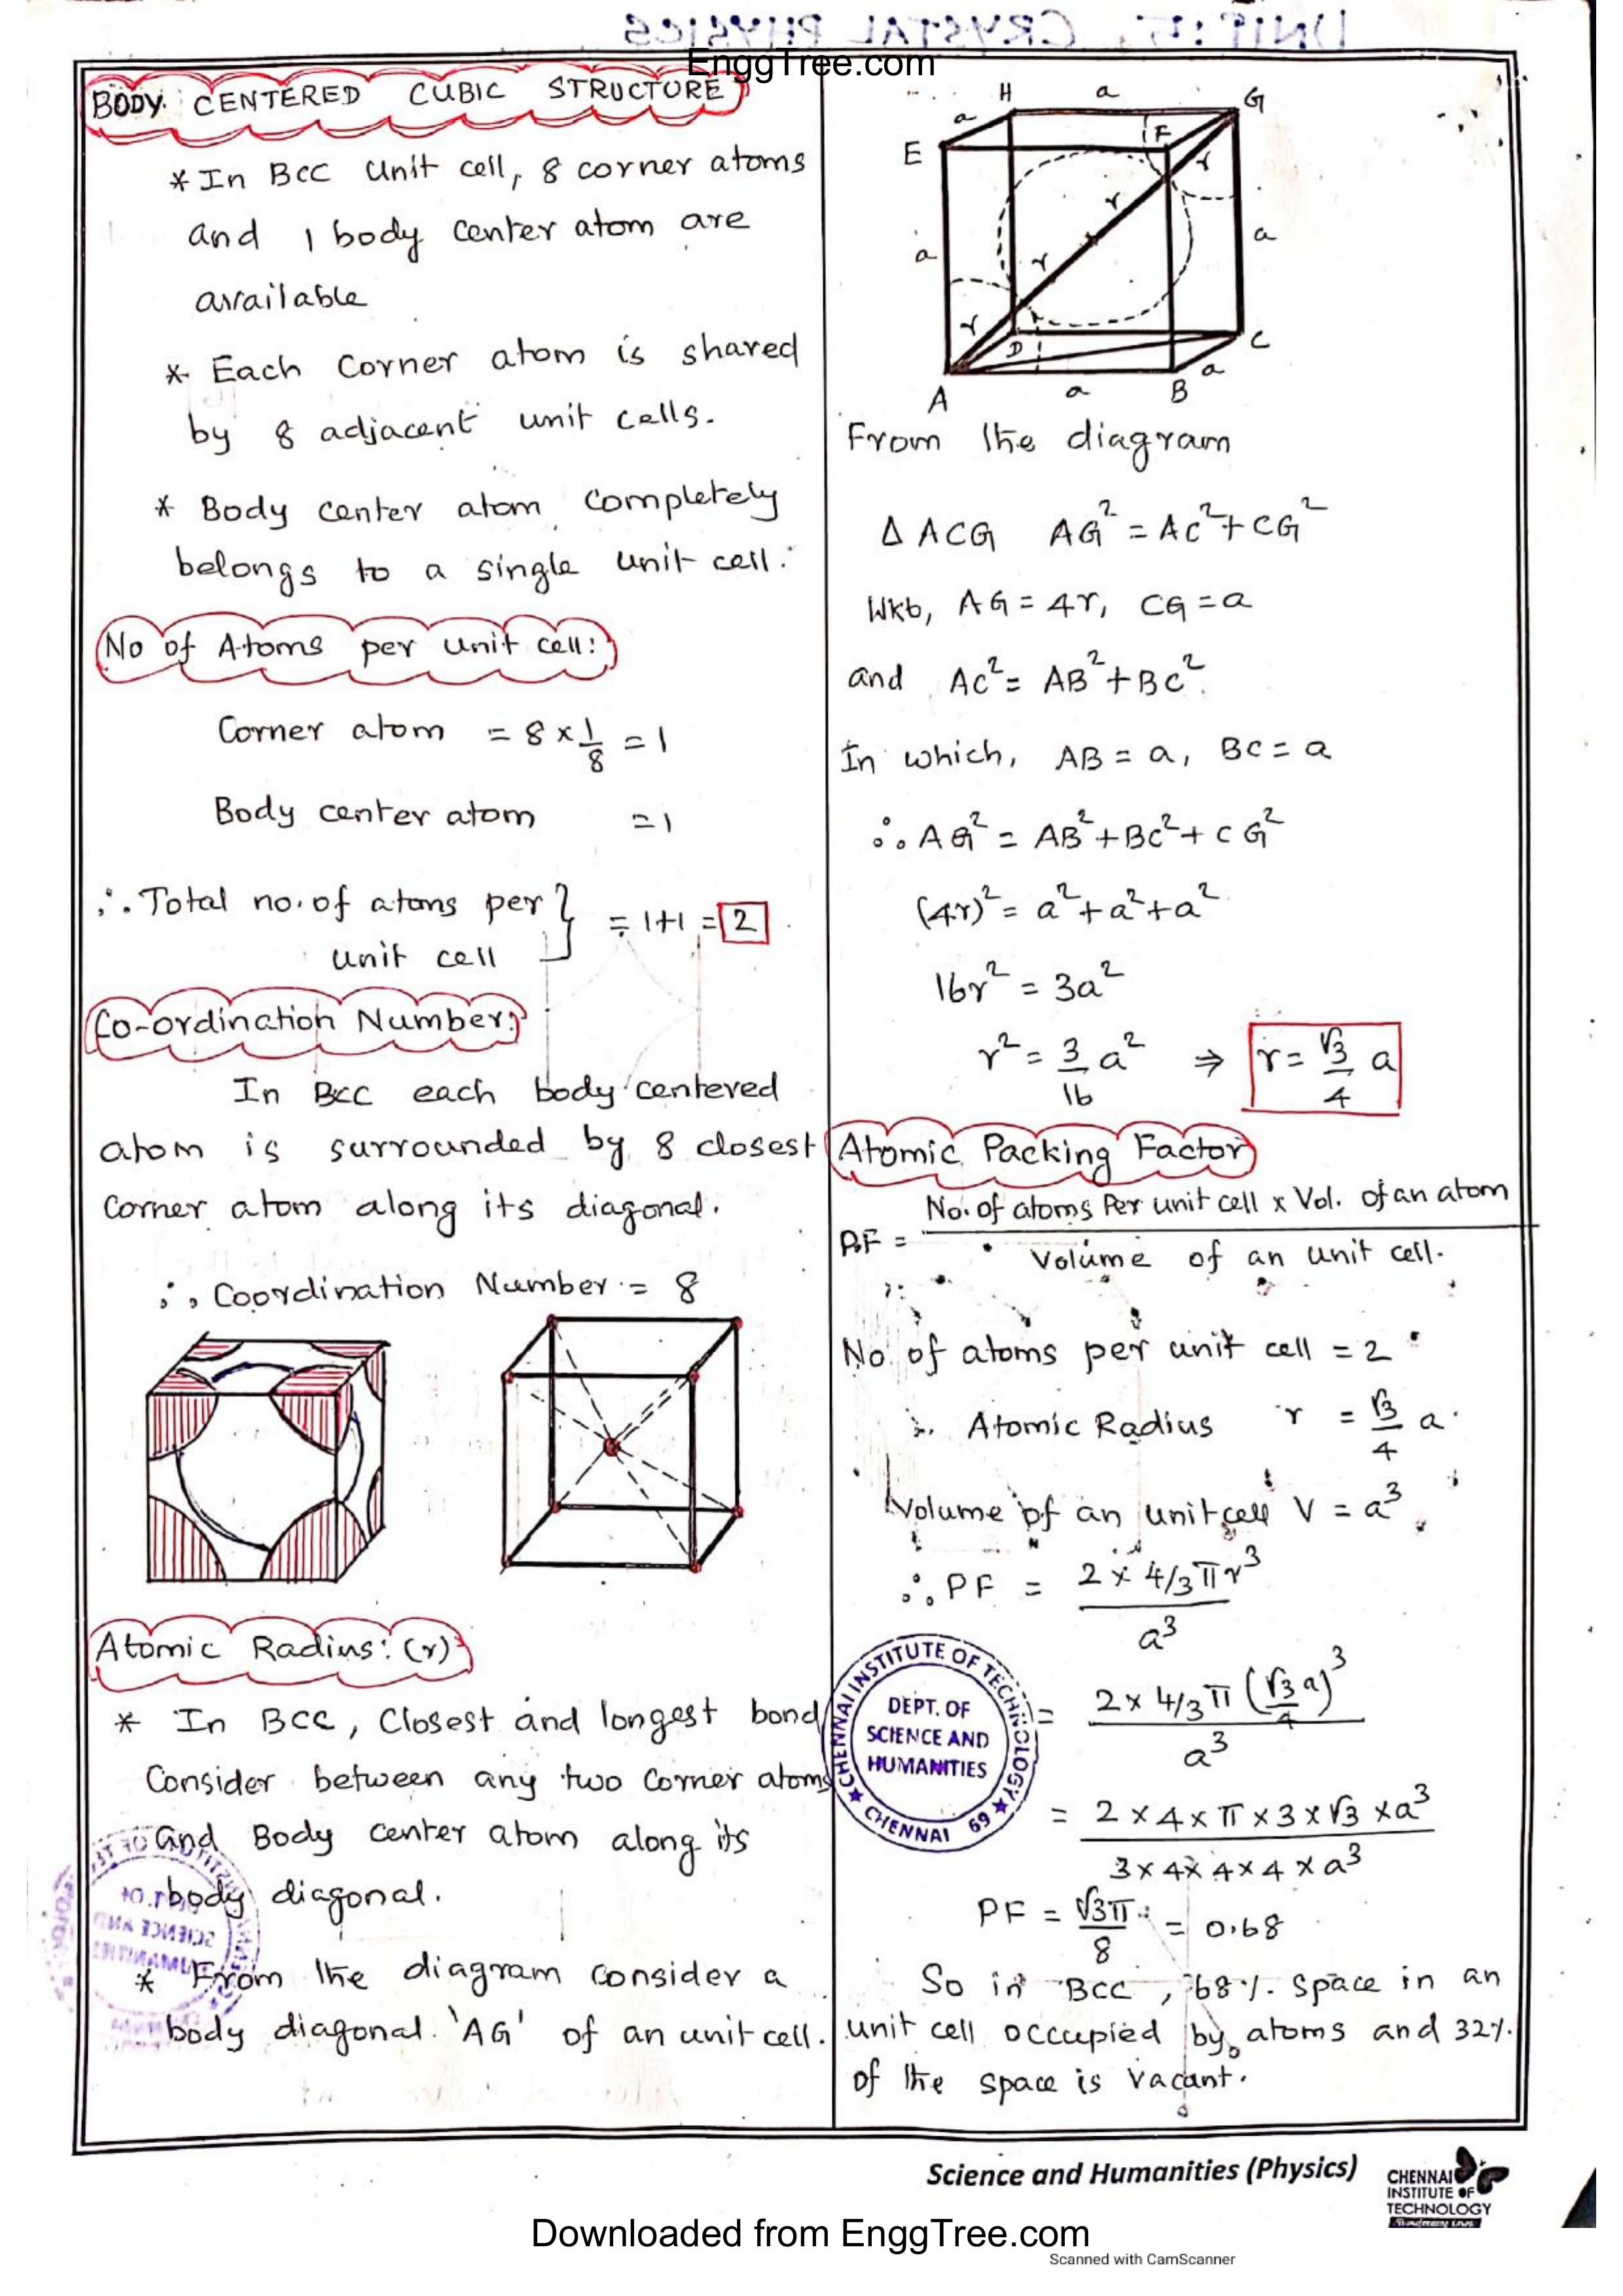 UNIT: 5. CRYSTAL PHYSICS
EnggTree.com
BODY CENTERED CUBIC STRUCTURE
* In BCC unit cell, 8 corner atoms
and 1 body center atom are
available
* Each Corner atom is shared
by 8 adjacent unit cells.
* Body center atom completely
belongs to a single unit cell.
No of Atoms per unit cell:
Corner atom = 8 × 1/8 = 1
Body center atom = 1
∴ Total no. of atoms per } = 1+1 = 2
unit cell
Co-ordination Number:
In BCC each body centered
atom is surrounded by 8 closest
corner atom along its diagonal.
∴ Coordination Number = 8
Atomic Radius: (r)
* In BCC, Closest and longest bond
Consider between any two Corner atoms
and Body center atom along its
body diagonal.
* From the diagram consider a
body diagonal 'AG' of an unit cell.
H a G
a
E F r
r
a r a
r
D C
A a B a
From the diagram
Δ ACG AG² = AC² + CG²
Wkt, AG = 4r, CG = a
and AC² = AB² + BC²
In which, AB = a, BC = a
∴ AG² = AB² + BC² + CG²
(4r)² = a² + a² + a²
16r² = 3a²
r² = 3/16 a² ⇒ r = √3/4 a
Atomic Packing Factor
P.F = No. of atoms Per unit cell x Vol. of an atom / Volume of an unit cell.
No of atoms per unit cell = 2
∴ Atomic Radius r = √3/4 a
Volume of an unit cell V = a³
∴ PF = 2 × 4/3 π r³ / a³
= 2 × 4/3 π (√3/4 a)³ / a³
= 2 × 4 × π × 3 × √3 × a³ / 3 × 4 × 4 × 4 × a³
PF = √3π / 8 = 0.68
So in BCC, 68% space in an
unit cell occupied by atoms and 32%
of the space is vacant.
CHENNAI INSTITUTE OF TECHNOLOGY
DEPT. OF
SCIENCE AND
HUMANITIES
CHENNAI 69
Science and Humanities (Physics)
CHENNAI
INSTITUTE OF
TECHNOLOGY
Downloaded from EnggTree.com
Scanned with CamScanner